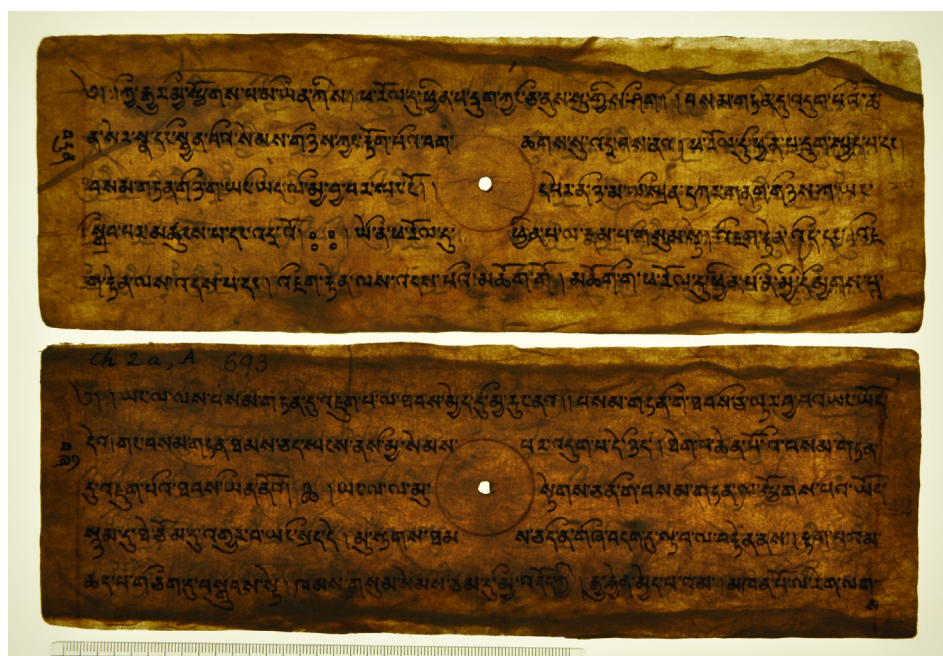 ༄། །ཀྱི་རྒྱུར་མྱི་སྤྱོགས་པ་མ་ཡིན་གིས། ཕ་རོལ་དུ་ཕྱིན་པ་དྲུག་ཀྱང་ཅི་ནུས་སུ་གྱིས་ཤིག། །བསམ་གཏན་དུ་འདུག་པའི་ཚེ
ན་སེར་སྣ་དང་སྦྱིན་པའི་སེམས་གཉིས་ཀྱང་རྟོག་པའི་བག་ ཆགས་སུ་འདྲ་བས་ནའ། །ཕ་རོལ་དུ་ཕྱིན་པ་དྲུག་སྤྱང་པ་དང་
བསམ་གཏན་ ཡང་ཡོད་ལ་མྱི་བྱ་བར་སྤང་ངོ། དཔེར་ན་ཉི་མ་ལ་སྤྲིན་དཀར་གནག་གཉིས་ཀ་ཡང་
སྒྲིབ་པར་མཚུངས་པ་དང་འདྲའོ། །ཡེ་ནི་ཕ་རོལ་དུ་ ཕྱིན་པ་ལ་རྣམ་པ་གསུམ་སྟེ། འཇིག་རྟེན་གྀ་དང་། འཇི
ག་རྟེན་ལས་འདས་པ་དང་། འཇིག་རྟེན་ལས་འདས་པའི་མཆོག་གོ། །མཆོག་གི་ཕ་རོལ་དུ་ཕྱིན་པ་ནི་མྱི་དམྱིགས་པ
Ch 2a, A 693
༄། །ཡང་ལ་ལས་བསམ་གཏན་དུ་འཇུག་པ་ལ་ཐབས་མྱེད་དུ་མྱི་རུང་ནའ། །བསམ་གཏན་གྀ་ཐབས་ཅི་ལྟར་བྱ་བའ་ཡང་ཡོད་
དེའ། གང་བསམ་གཏན་ཐམས་ཅད་སྤངས་ནས་མྱི་སེམས་ པར་འདུག་པ་དེ་ཉིད། །ཐེག་པ་ཆེན་པོའི་བསམ་གཏན་
དུ་འཇུག་པའི་ཐབས་ཡིན་ནོའ། །ཡང་ལ་ལ་མུ་ སྟེགས་ཅན་གི་བསམ་གཏན་ལ་ཕྱོགས་པའ་ཡོད་
སྙམ་དུ་ཐེ་ཙོམ་དུ་འགྱུར་བ་ཡང་སྲིད་དེ། མུ་སྟེགས་ཐམ ས་ཅད་ནི་གཞི་བདག་དུ་ལྟ་བ་ལ་བརྟེན་ནས། རྟག་པའམ་
ཆད་པ་གཅིག་དུ་བསྒྲུབས་སྟེ། །ཁམས་གསུམ་སེམས་ཙམ་དུ་མྱི་འདོད་ཀྱི། རྒྱུ་རྐྱེན་མྱེད་པའམ། །མཁན་པོ་ལ་རིག་ལག་